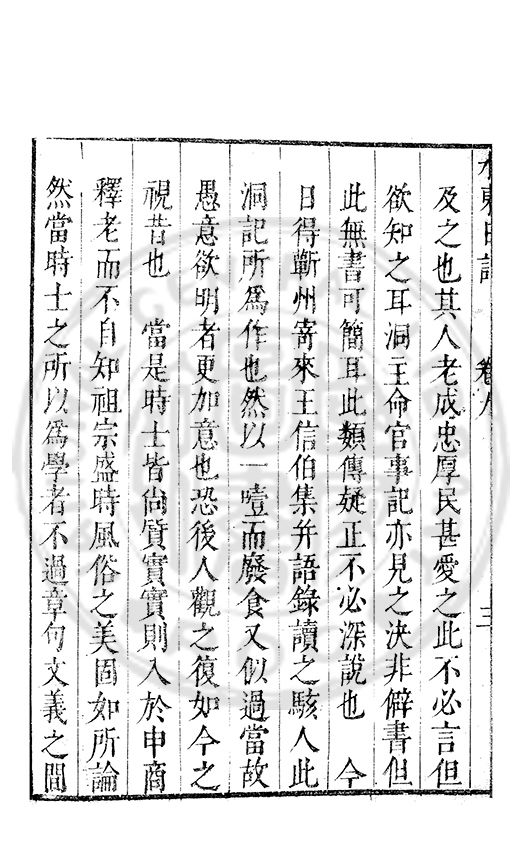 水東日記　卷八　三
及之也其人老成忠厚民甚愛之此不必言但
欲知之耳洞主命官事記亦見之決非僻書但
此無書可簡耳此類傳疑正不必深說也　今
日得蘄州寄來王信伯集并語錄讀之駭人此
洞記所爲作也然以一噎而廢食又似過當故
愚意欲明者更加意也恐後人觀之復如今之
視昔也　當是時士皆尚質實實則入於申商
釋老而不自知祖宗盛時風俗之美固如所論
然當時士之所以爲學者不過章句文義之間